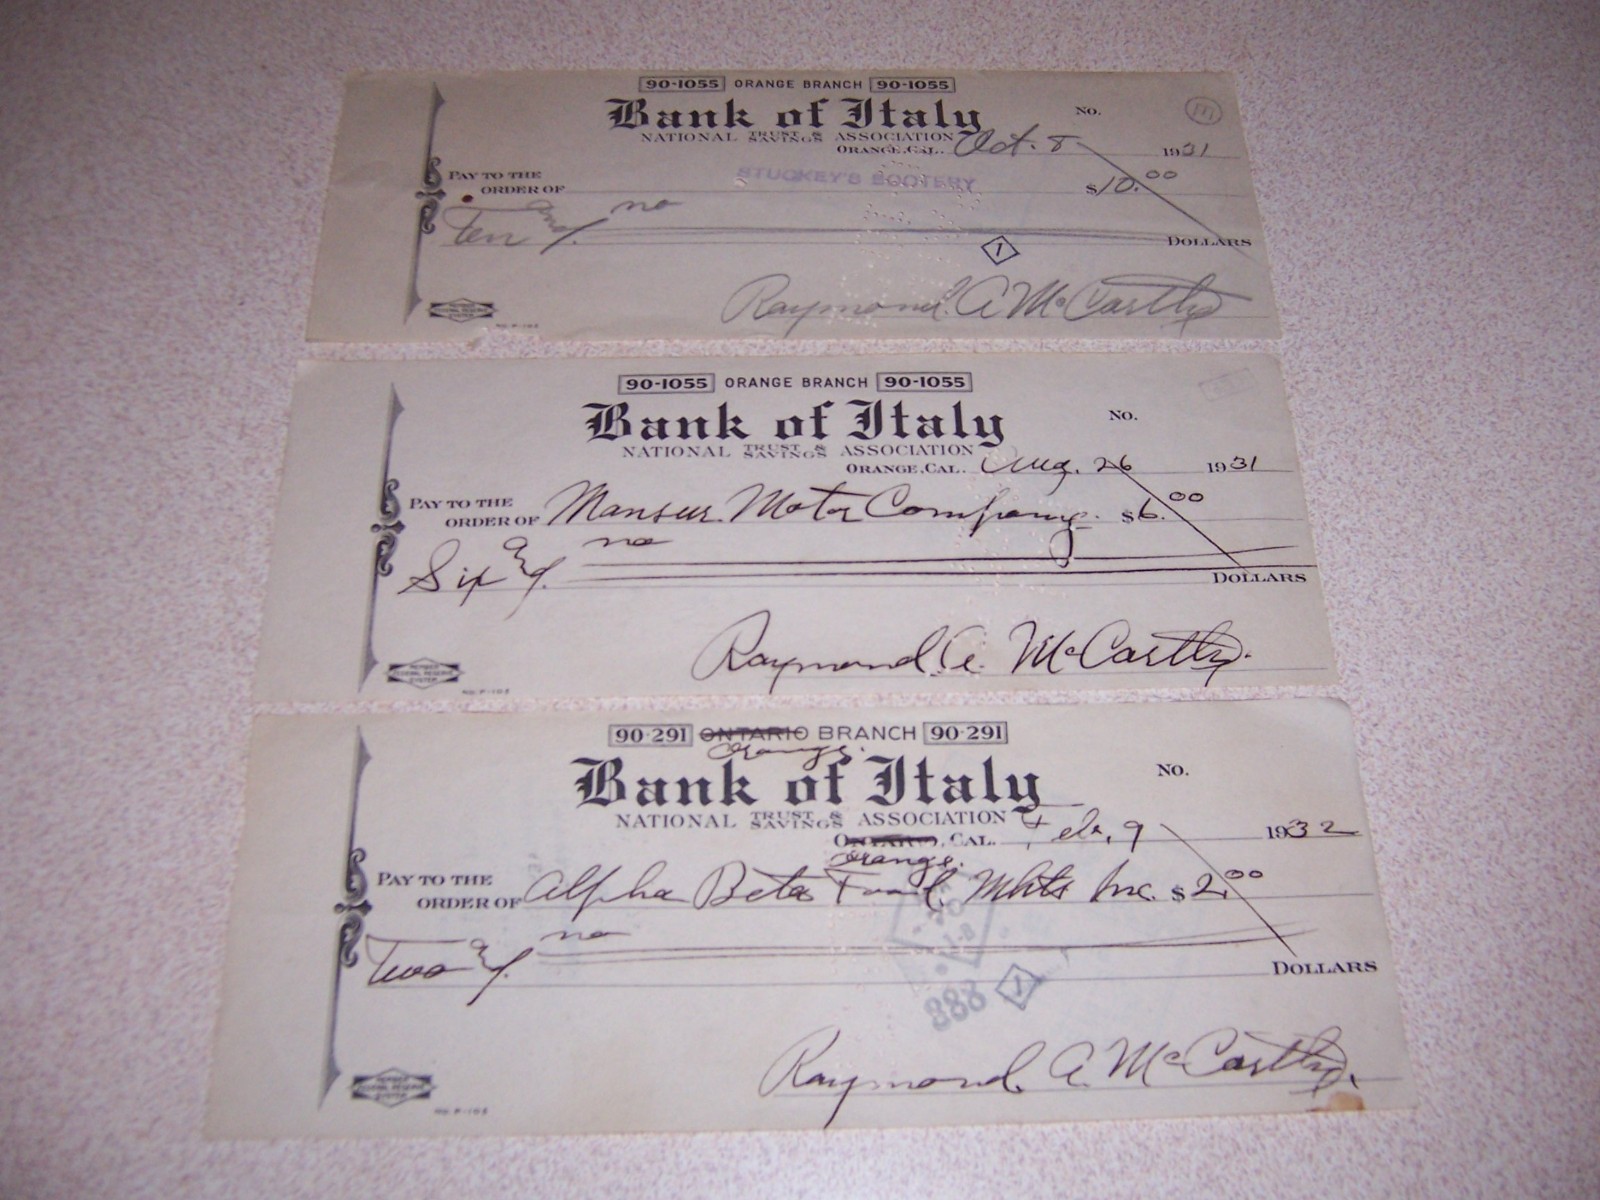 90-1055 ORANGE BRANCH 90-1055
Bank of Italy
NATIONAL TRUST & SAVINGS ASSOCIATION
No.
ORANGE, CAL. Oct. 8 1931
PAY TO THE ORDER OF STUCKEY'S BOOTERY $10.00
Ten and no
DOLLARS
1
Raymond A McCarthy
MEMBER FEDERAL RESERVE SYSTEM
90-1055 ORANGE BRANCH 90-1055
Bank of Italy
NATIONAL TRUST & SAVINGS ASSOCIATION
No.
ORANGE, CAL. Aug. 26 1931
PAY TO THE ORDER OF Mansur Motor Company. $6.00
Six & no
DOLLARS
Raymond A. McCarthy.
MEMBER FEDERAL RESERVE SYSTEM
90-291 ONTARIO BRANCH 90-291
Orange.
Bank of Italy
NATIONAL TRUST & SAVINGS ASSOCIATION
No.
ONTARIO, CAL. Feb. 9 1932
Orange.
PAY TO THE ORDER OF Alpha Beta Food Mkts Inc. $2.00
Two & no
DOLLARS
888 1
Raymond A. McCarthy.
MEMBER FEDERAL RESERVE SYSTEM